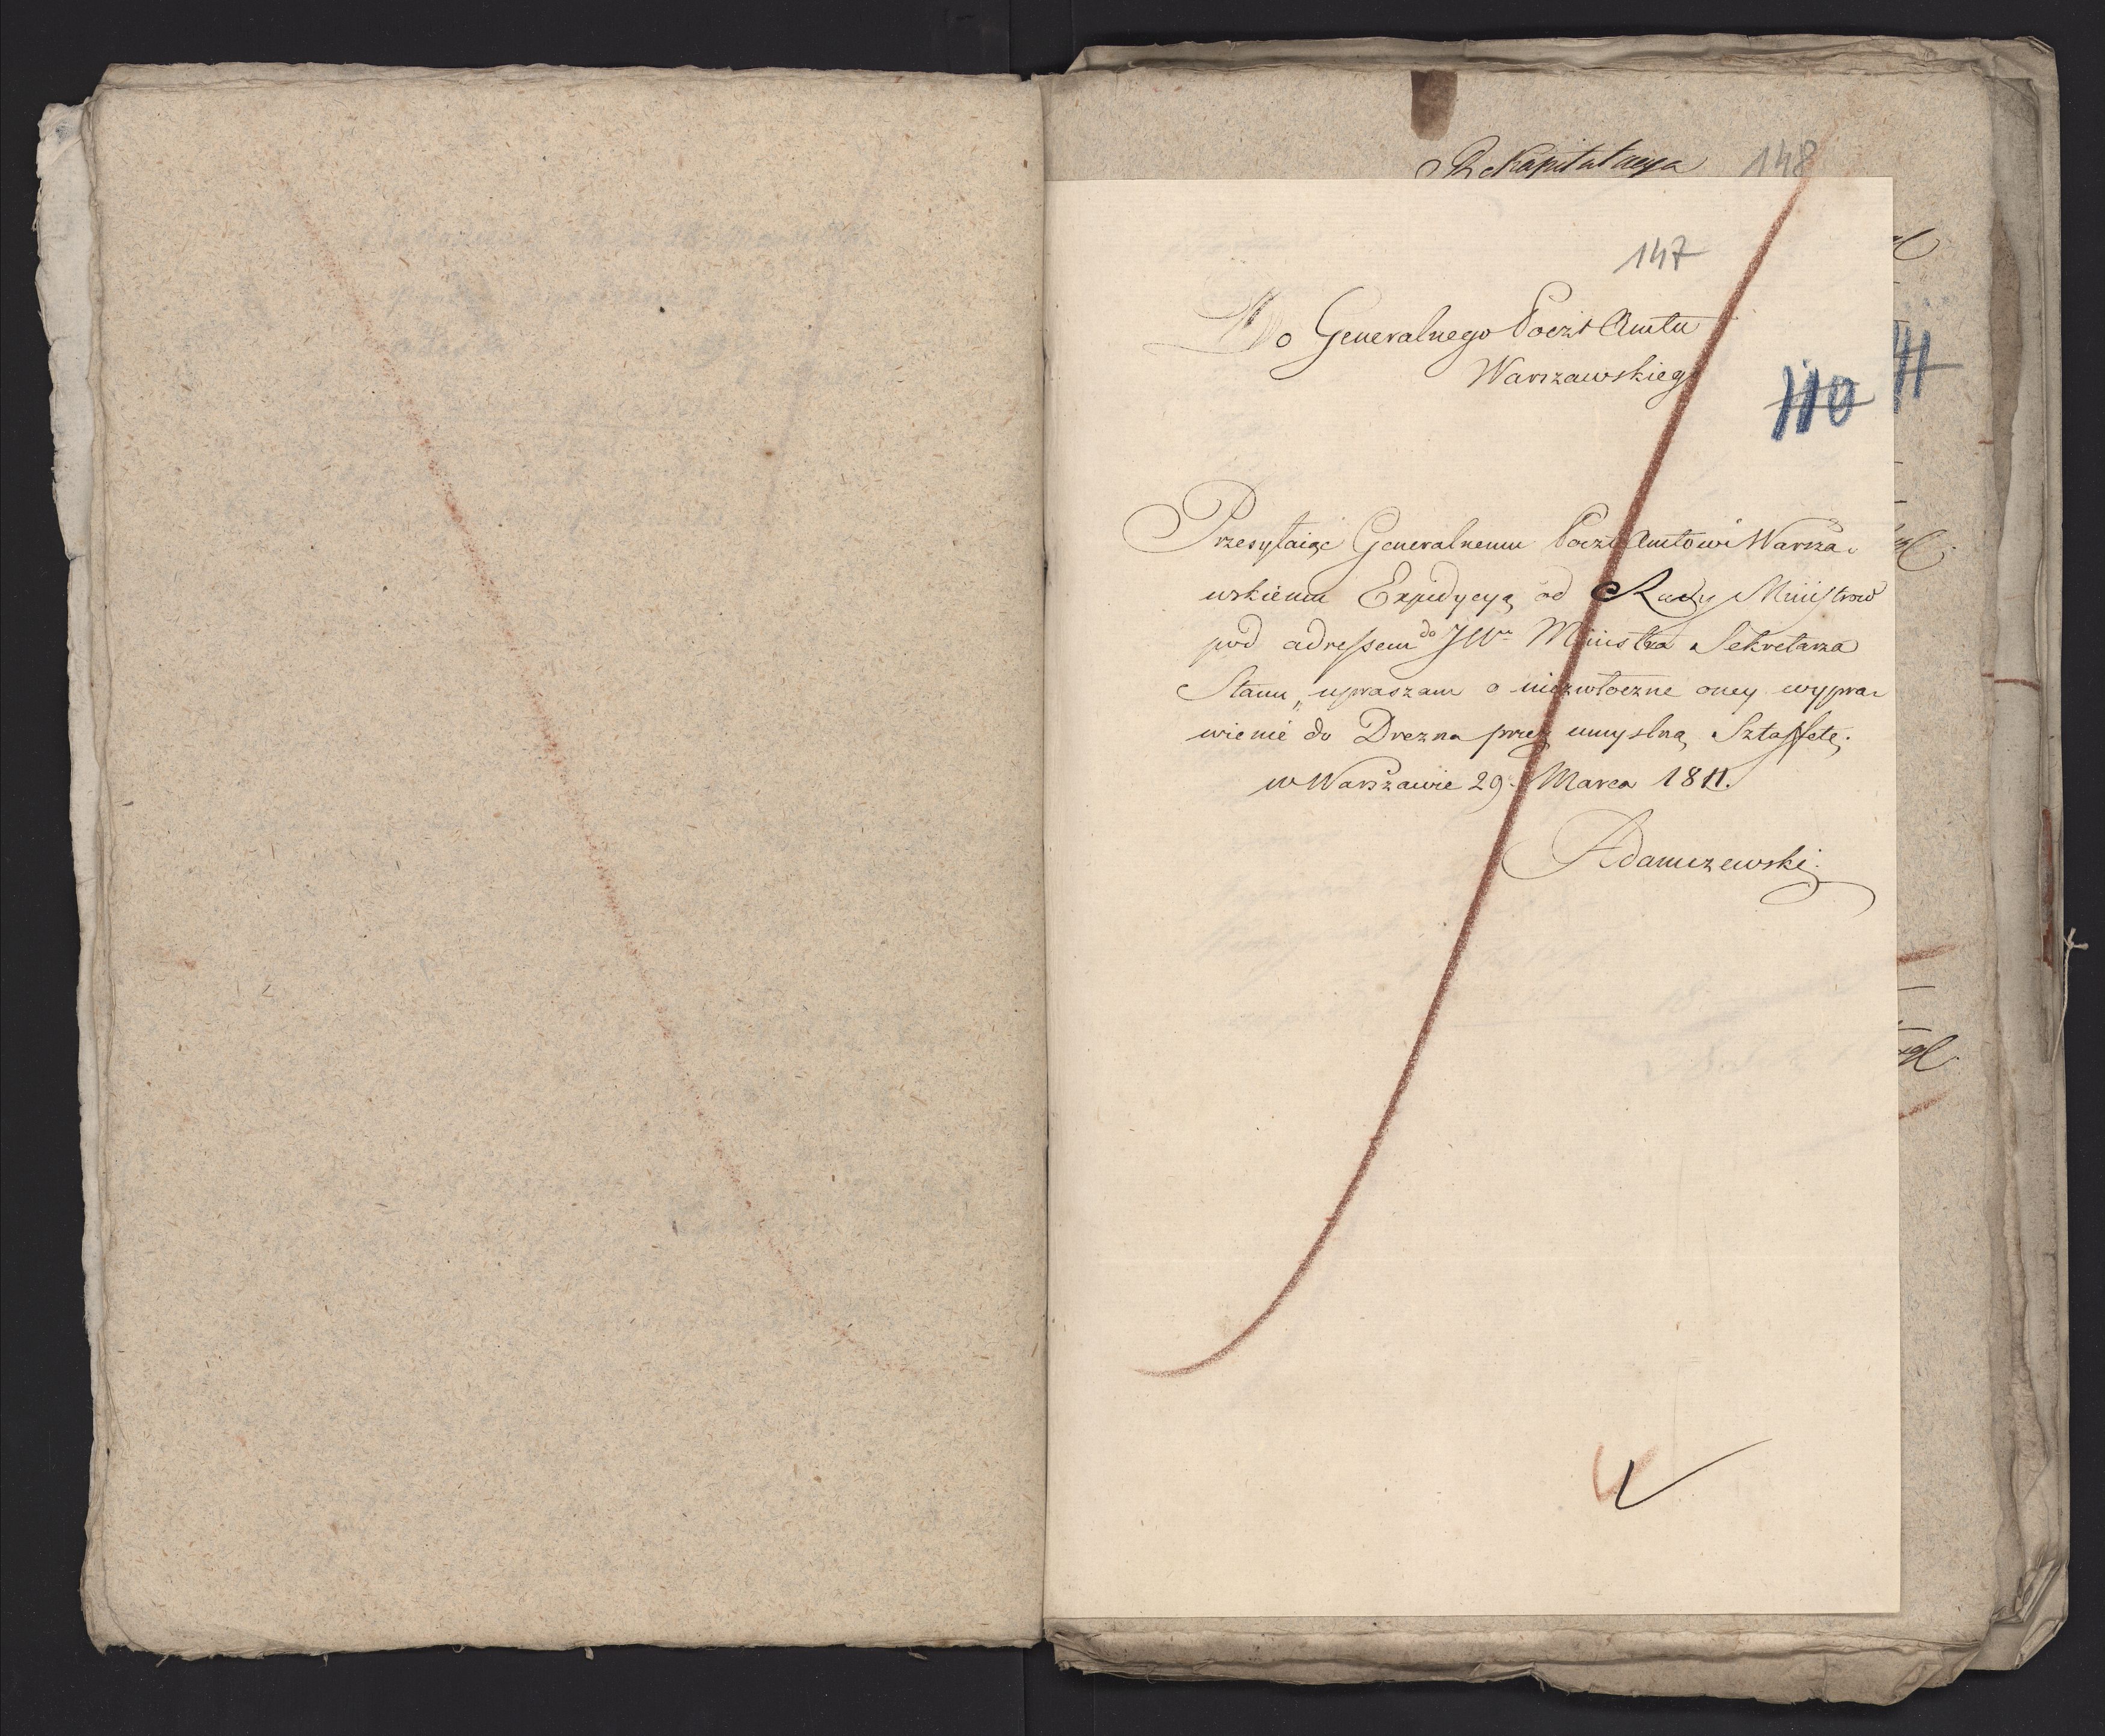 Rekapitulacya 148
147
Do Generalnego Poczt Amtu
Warszawskiego
110
Przesyłaiąc Generalnemu Poczt Amtowi Warsza-
wskiemu Expedycyą od Rady Ministrow
pod adressem do JWo Ministra Sekretarza
Stanu, upraszam o niezwłoczne oney wypra-
wienie do Drezna przez umyslną Sztaffetę.
w Warszawie 29. Marca 1811.
Adamczewski